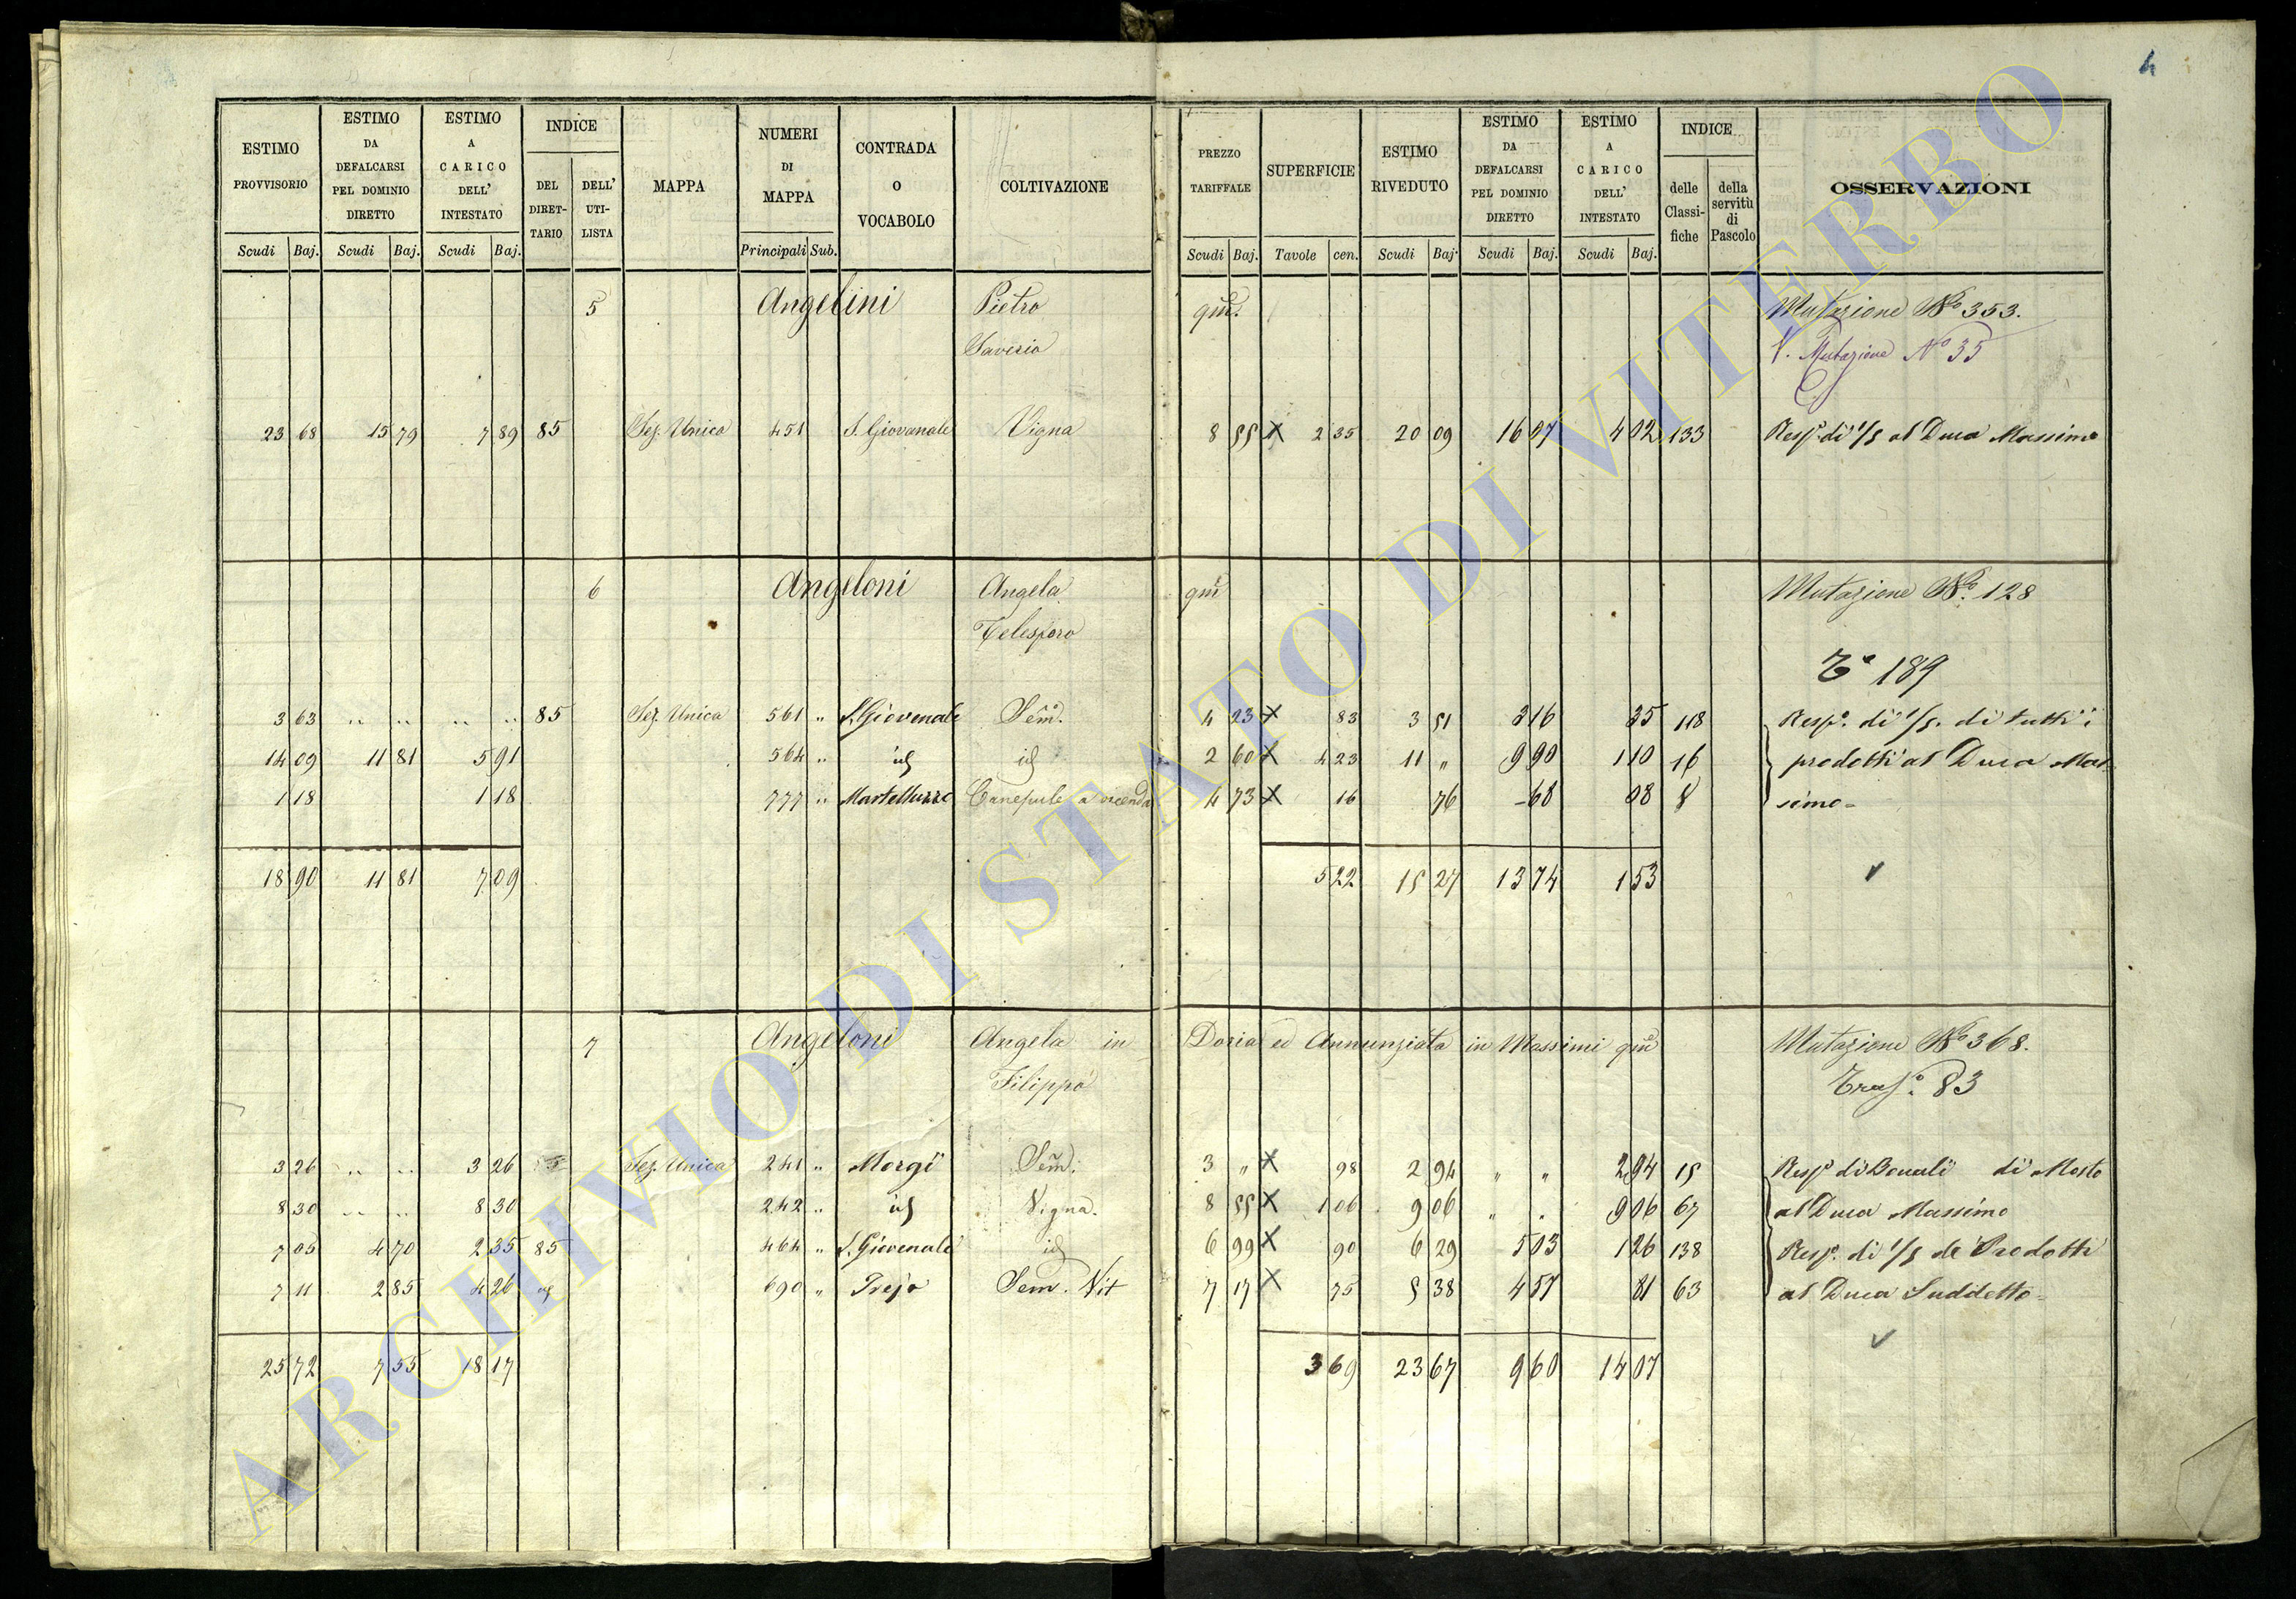 4
ESTIMO PROVVISORIO | ESTIMO DA DEFALCARSI PEL DOMINIO DIRETTO | ESTIMO A CARICO DELL' INTESTATO | INDICE | MAPPA | NUMERI DI MAPPA | CONTRADA O VOCABOLO | COLTIVAZIONE | PREZZO TARIFFALE | SUPERFICIE | ESTIMO RIVEDUTO | ESTIMO DA DEFALCARSI PEL DOMINIO DIRETTO | ESTIMO A CARICO DELL' INTESTATO | INDICE | OSSERVAZIONI
DEL DIRET-TARIO | DELL' UTI-LISTA | delle Classi-fiche | della servitù di Pascolo
Scudi | Baj. | Scudi | Baj. | Scudi | Baj. | Principali | Sub. | Scudi | Baj. | Tavole | cen. | Scudi | Baj. | Scudi | Baj. | Scudi | Baj.
5 Angelini Pietro qm. Mutazione No 353.
Saverio V. Mutazione No 35
23 68 15 79 7 89 85 Sez. Unica 451 S. Giovenale Vigna 8 55 X 2 35 20 09 16 07 4 02 133 Respa di 1/5 al Duca Massimo
6 Angeloni Angela qm Mutazione No. 128
Telesforo
Ta 189
3 63 .. .. .. .. 85 Sez. Unica 561 " S. Giovenale Sem. 4 23 X 83 3 51 3 16 35 118 Respa. di 1/5. di tutti i
14 09 11 81 5 91 564 " id id 2 60 X 4 23 11 " 9 90 1 10 16 prodotti al Duca Mas
1 18 1 18 777 " Martelluzzo Canepule a vicenda 4 73 X 16 76 - 68 08 8 simo -
18 90 11 81 7 09 5 22 15 27 13 74 1 53
7 Angeloni Angela in Doria ed Annunziata in Massimi qm Mutazione No 368.
Filippo Trasa. 83
3 26 .. .. 3 26 Sez. Unica 241 " Morgi Sem. 3 " X 98 2 94 " " 2 94 15 Respa di Boccali di Mosto
8 30 .. .. 8 30 242 " id Vigna. 8 55 X 1 06 9 06 " " 9 06 67 al Duca Massimo
7 05 4 70 2 35 85 464 " S. Giovenale id 6 99 X 90 6 29 5 03 1 26 138 Respa. di 1/5 de Prodotti
7 11 2 85 4 26 id 690 " Prejo Sem. Vit 7 17 X 75 5 38 4 57 81 63 al Duca Suddetto -
25 72 7 55 18 17 3 69 23 67 9 60 14 07
ARCHIVIO DI STATO DI VITERBO